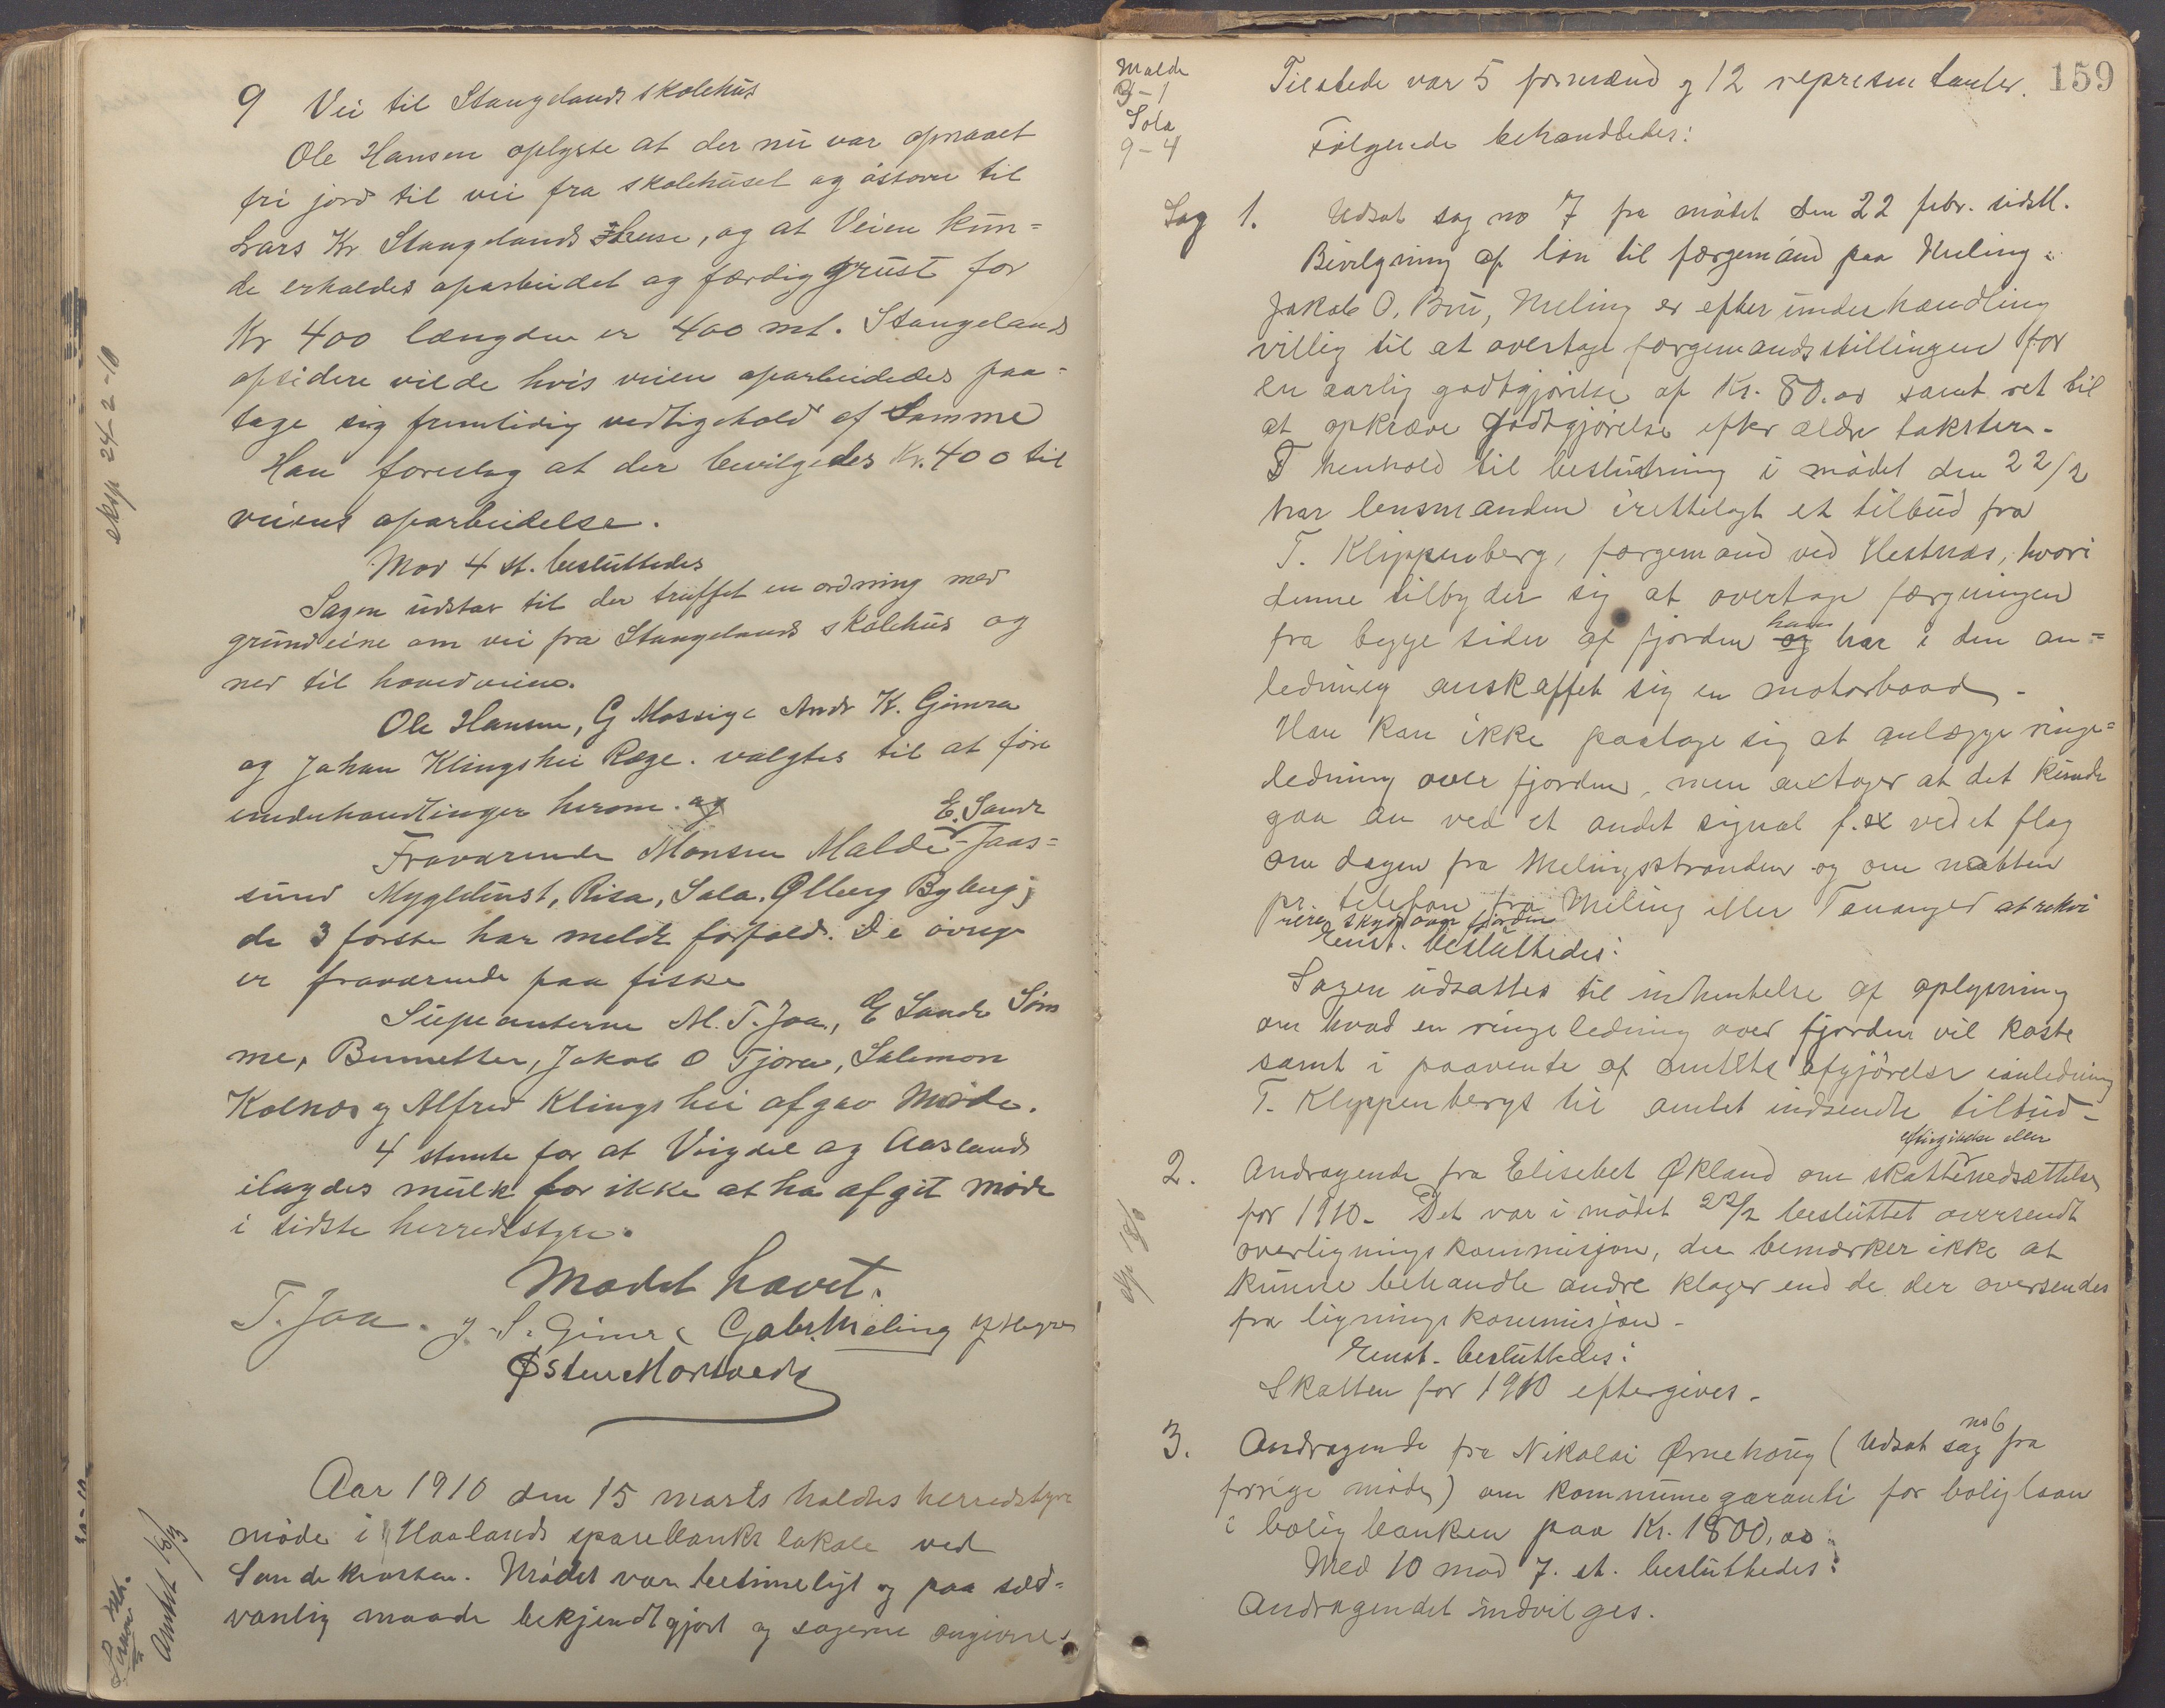 9 Vei til Stangelands skolehus
Ole Hansen oplyste at der nu var opnaaet
fri jord til vei fra skolehuset og östover til
Lars Kr Stangelands Huse, og at Veien kun=
de erholdes oparbeidet og færdig grust for
Kr 400 længden er 400 mt. Stangelands
opsidere vilde hvis veien oparbeidedes paa=
tage sig fremtidig vedligehold af Samme
Han foreslog at der bevilgedes Kr. 400 til
veiens oparbeidelse.
Mod 4 st. besluttedes
Sagen udstaar til der truffet en ordning med
grundeierne om vei fra Stangelands skolehus og
ned til hovedveien.
Ole Hansen, G Mossige Andr K. Gimra
og Johan Klingshei Ræge. valgtes til at före
underhandlinger herom. og
E. Sande
Fraværende Monsen Malde Jaas=
sund Mygletunst, Risa, Sola, Ølberg Byberg;
de 3 förste har meldt forfald. De övrige
er fraværende paa fiske
Supeanterne M. T. Joa, E Sande Söm
me, Brunetter, Jakob O Tjora, Salemon
Kolnes og Alfred Klingshei afgav Möde.
4 stemte for at Vigdel og Aasland
ilagdes mulk for ikke at ha afgit möde
i sidste herredsstyre.
Mödet hævet.
T. Joa. J. S. Gimre Gabr. Meling
Østen Mortveds
Aar 1910 den 15 marts holdtes herredstyre
möde i Haalands sparebanks lokale ved
Sandekrossen. Mödet var betimeligt og paa sæd=
vanlig maade bekjendtgjort og sagerne angivne.
eksp 24-2-10
Amtet 18/3
159
Malde
3-1
Sola
9-4
Tilstede var 5 formænd og 12 representanter.
Fölgende behandledes:
Sag 1. Udsat sag no 7 fra mödet den 22 febr. sidstl.
Bevilgning af lön til færgemand paa Meling.
Jakob O. Bru, Meling er efter underhandling
villig til at overtage færgemandsstillingen for
en aarlig godtgjörelse af Kr. 80.00 samt ret til
at opkræve godtgjörelse efter ældre taksten.
I henhold til beslutning i mödet den 22/2
har lensmanden irettelagt et tilbud fra
T. Klippenberg, færgemand ved Hestnæs, hvori
denne tilbyder sig at overtage færgningen
fra begge sider af fjorden og han har i den an=
ledning anskaffet sig en motorbaad.
Han kan ikke paatage sig at anlægge ringe=
ledning over fjorden, men antager at det kunde
gaa an ved et andet signal f.ex ved et flag
om dagen fra Melingsstranden og om natten
pr. telefon fra Meling eller Tananger at rekvi
rere skyds over fjorden
Enst. besluttedes:
Sagen udsattes til indhentelse af oplysning
om hvad en ringeledning over fjorden vil koste
samt i paavente af amtets afgjörelse ianledning
T. Klyppenbergs til amtet indsendte tilbud.
eftergivelse eller
2. Andragende fra Elisebet Økland om skattenedsættelse
for 1910. Det var i mödet 22/2 besluttet oversendt
overligningskommisjon, der bemærker ikke at
kunne behandle andre klager end de der oversendes
fra ligningskommisjon.
Enst. besluttedes:
Skatten for 1910 eftergives.
3. Andragende fra Nikolai Ørnehaug (Udsat sag no 6 fra
forrige möde) om kommunegaranti for boliglaan
i boligbanken paa Kr. 1800,00.
Med 10 mod 7. st. besluttedes:
Andragendet indvilges.